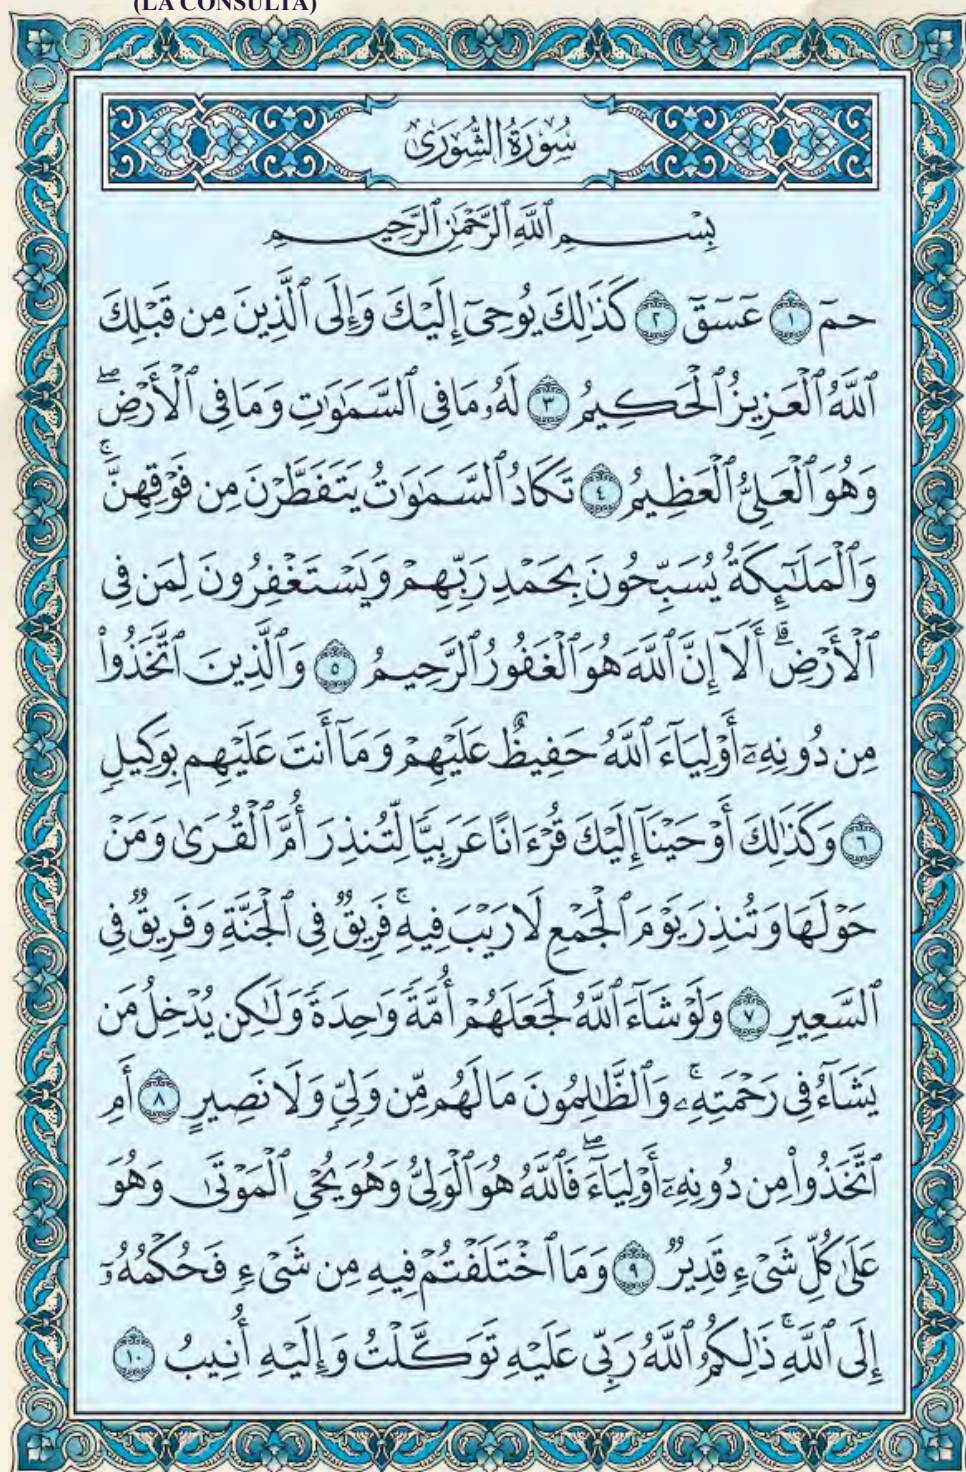 (LA CONSULTA)
سُورَةُ الشُّورَىٰ
بِسْمِ ٱللَّهِ ٱلرَّحْمَٰنِ ٱلرَّحِيمِ
حمٓ ١ عٓسٓقٓ ٢ كَذَٰلِكَ يُوحِىٓ إِلَيْكَ وَإِلَى ٱلَّذِينَ مِن قَبْلِكَ
ٱللَّهُ ٱلْعَزِيزُ ٱلْحَكِيمُ ٣ لَهُۥ مَا فِى ٱلسَّمَٰوَٰتِ وَمَا فِى ٱلْأَرْضِۖ
وَهُوَ ٱلْعَلِىُّ ٱلْعَظِيمُ ٤ تَكَادُ ٱلسَّمَٰوَٰتُ يَتَفَطَّرْنَ مِن فَوْقِهِنَّۚ
وَٱلْمَلَٰٓئِكَةُ يُسَبِّحُونَ بِحَمْدِ رَبِّهِمْ وَيَسْتَغْفِرُونَ لِمَن فِى
ٱلْأَرْضِۗ أَلَآ إِنَّ ٱللَّهَ هُوَ ٱلْغَفُورُ ٱلرَّحِيمُ ٥ وَٱلَّذِينَ ٱتَّخَذُوا۟
مِن دُونِهِۦٓ أَوْلِيَآءَ ٱللَّهُ حَفِيظٌ عَلَيْهِمْ وَمَآ أَنتَ عَلَيْهِم بِوَكِيلٍ
٦ وَكَذَٰلِكَ أَوْحَيْنَآ إِلَيْكَ قُرْءَانًا عَرَبِيًّا لِّتُنذِرَ أُمَّ ٱلْقُرَىٰ وَمَنْ
حَوْلَهَا وَتُنذِرَ يَوْمَ ٱلْجَمْعِ لَا رَيْبَ فِيهِۚ فَرِيقٌ فِى ٱلْجَنَّةِ وَفَرِيقٌ فِى
ٱلسَّعِيرِ ٧ وَلَوْ شَآءَ ٱللَّهُ لَجَعَلَهُمْ أُمَّةً وَٰحِدَةً وَلَٰكِن يُدْخِلُ مَن
يَشَآءُ فِى رَحْمَتِهِۦۚ وَٱلظَّٰلِمُونَ مَا لَهُم مِّن وَلِىٍّ وَلَا نَصِيرٍ ٨ أَمِ
ٱتَّخَذُوا۟ مِن دُونِهِۦٓ أَوْلِيَآءَۖ فَٱللَّهُ هُوَ ٱلْوَلِىُّ وَهُوَ يُحْىِ ٱلْمَوْتَىٰ وَهُوَ
عَلَىٰ كُلِّ شَىْءٍ قَدِيرٌ ٩ وَمَا ٱخْتَلَفْتُمْ فِيهِ مِن شَىْءٍ فَحُكْمُهُۥٓ
إِلَى ٱللَّهِۚ ذَٰلِكُمُ ٱللَّهُ رَبِّى عَلَيْهِ تَوَكَّلْتُ وَإِلَيْهِ أُنِيبُ ١٠